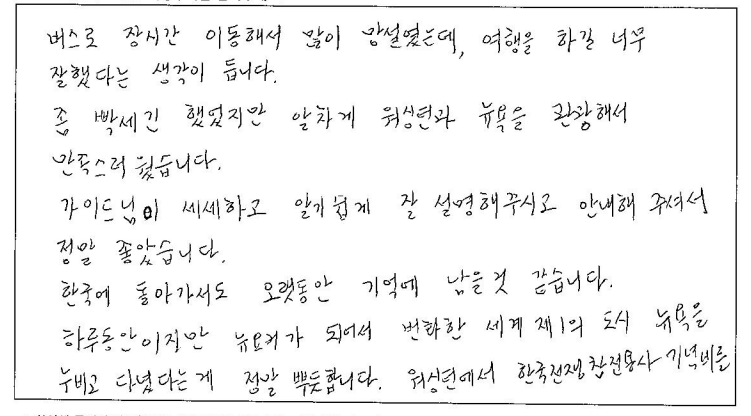 버스로 장시간 이동해서 많이 망설였는데, 여행을 하길 너무
잘했다는 생각이 듭니다.
좀 빡세긴 했었지만 알차게 워싱턴과 뉴욕을 관광해서
만족스러웠습니다.
가이드님이 세세하고 알기쉽게 잘 설명해주시고 안내해 주셔서
정말 좋았습니다.
한국에 돌아가서도 오랫동안 기억에 남을것 같습니다.
하루동안이지만 뉴요커가 되어서 번화한 세계 제1의 도시 뉴욕을
누비고 다녔다는게 정말 뿌듯합니다. 워싱턴에서 한국전쟁참전용사 기념비를